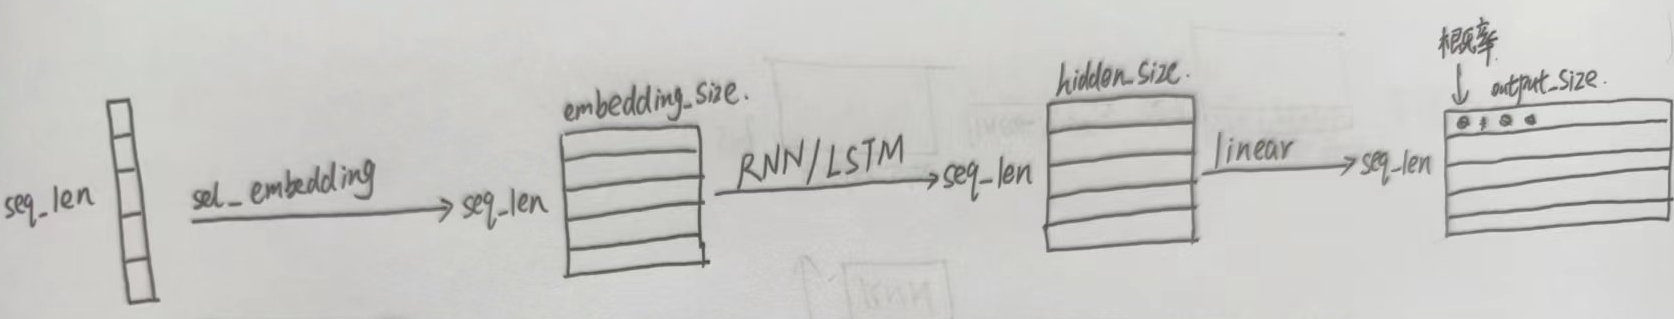 seq_len
sel_embedding
seq_len
embedding_size.
RNN/LSTM
seq_len
hidden_size.
linear
seq_len
概率
output_size.